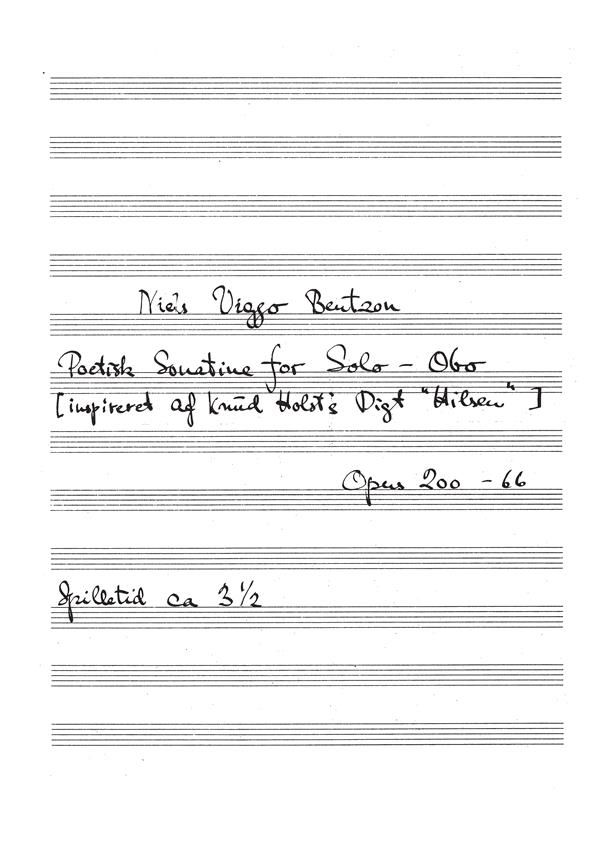 Niels Viggo Bentzon
Poetisk Sonatine for Solo - Obo
[inspireret af Knud Holst's Digt "Hilsen"]
Opus 200 - 66
Spilletid ca 3 1/2